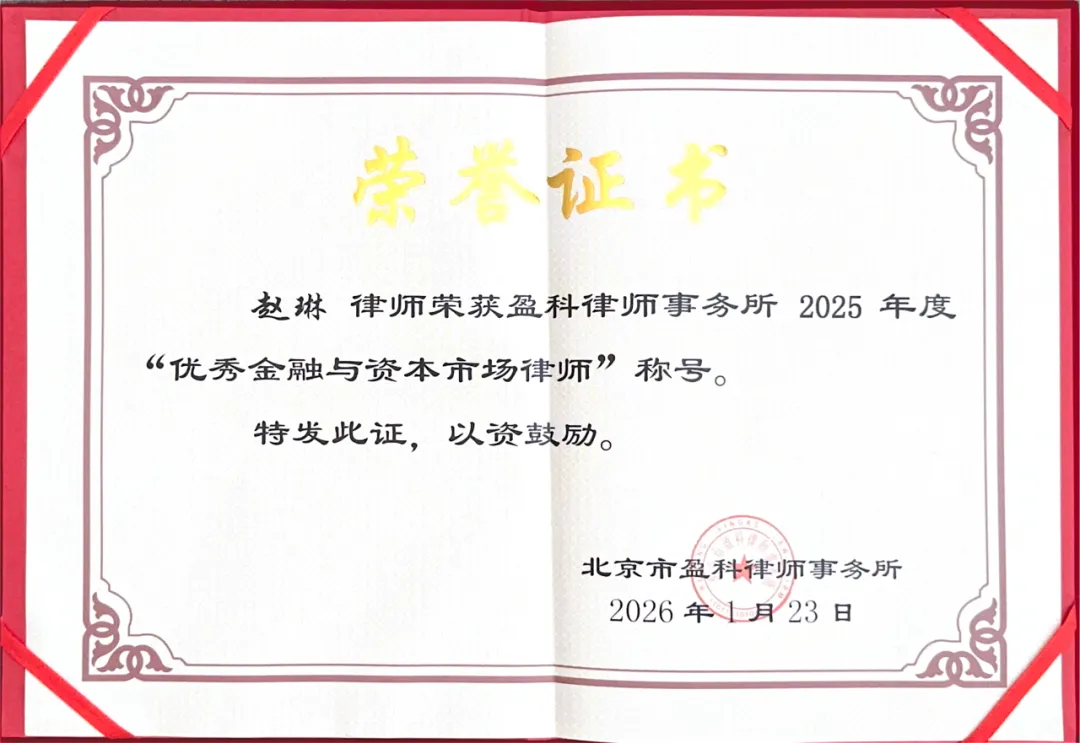 荣誉证书
赵琳 律师荣获盈科律师事务所 2025 年度
“优秀金融与资本市场律师”称号。
特发此证，以资鼓励。
北京市盈科律师事务所
2026 年 1 月 23 日